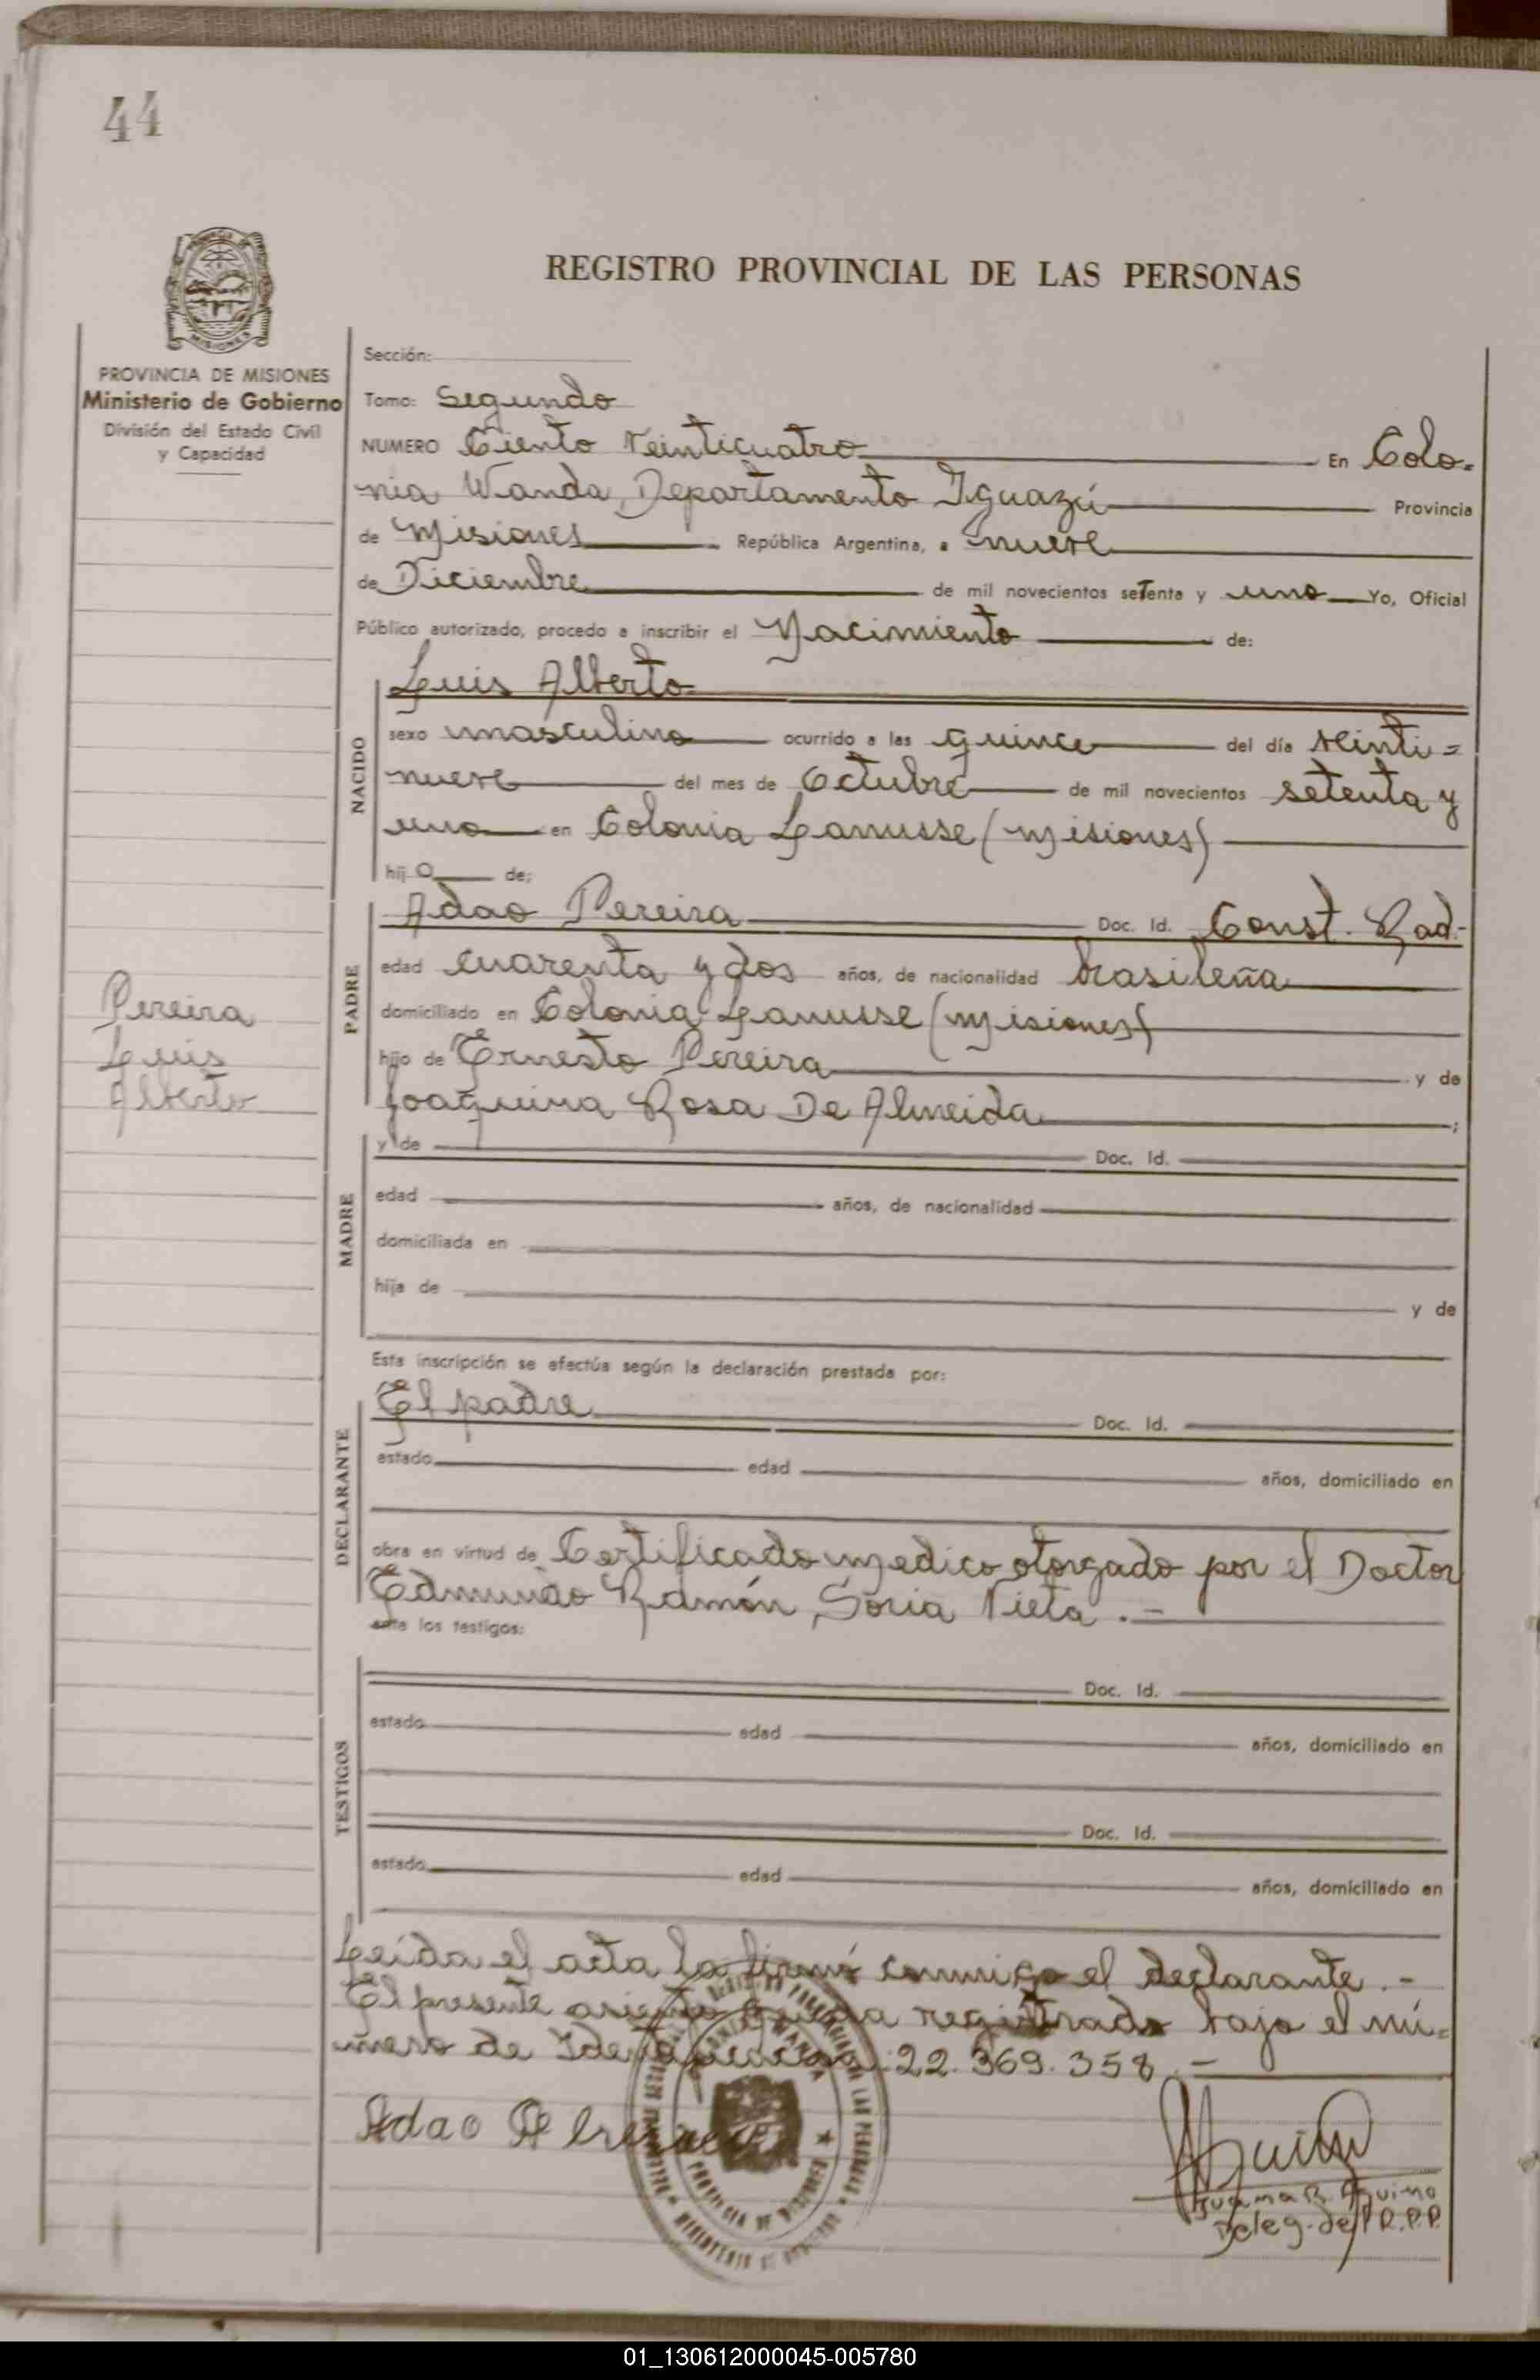 44
REGISTRO PROVINCIAL DE LAS PERSONAS
PROVINCIA DE MISIONES
Ministerio de Gobierno
División del Estado Civil
y Capacidad
Sección:
Tomo: Segundo
NUMERO Ciento Veinticuatro En Colo=
nia Wanda, Departamento Iguazú Provincia
de Misiones República Argentina, a nueve
de Diciembre de mil novecientos setenta y uno Yo, Oficial
Público autorizado, procedo a inscribir el Nacimiento de:
NACIDO
Luis Alberto
sexo masculino ocurrido a las quince del día veinti=
nueve del mes de Octubre de mil novecientos setenta y
uno en Colonia Lanusse (Misiones)
hij o de:
PADRE
Adao Pereira Doc. Id. Const. Rad.-
edad cuarenta y dos años, de nacionalidad brasileña
domiciliado en Colonia Lanusse (Misiones)
hijo de Ernesto Pereira y de
Joaquina Rosa De Almeida ;
Pereira
Luis
Alberto
MADRE
y de Doc. Id.
edad años, de nacionalidad
domiciliada en
hija de y de
Esta inscripción se efectúa según la declaración prestada por:
DECLARANTE
El padre Doc. Id.
estado edad años, domiciliado en
obra en virtud de Certificado medico otorgado por el Doctor
Edmundo Ramón, Soria Vieta .-
ante los testigos:
TESTIGOS
Doc. Id.
estado edad años, domiciliado en
Doc. Id.
estado edad años, domiciliado en
Leída el acta la firmó conmigo el declarante .-
El presente asiento queda registrado bajo el nú=
mero de 22.369.358 .-
Adao
Aquino
Deleg. del R.P.P.
PROVINCIA DE MISIONES
01_130612000045-005780